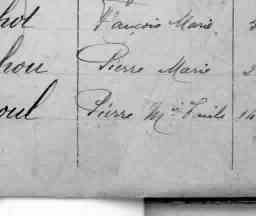 hot François Marie
hou Pierre Marie 2
oul Pierre M ie Emile 14